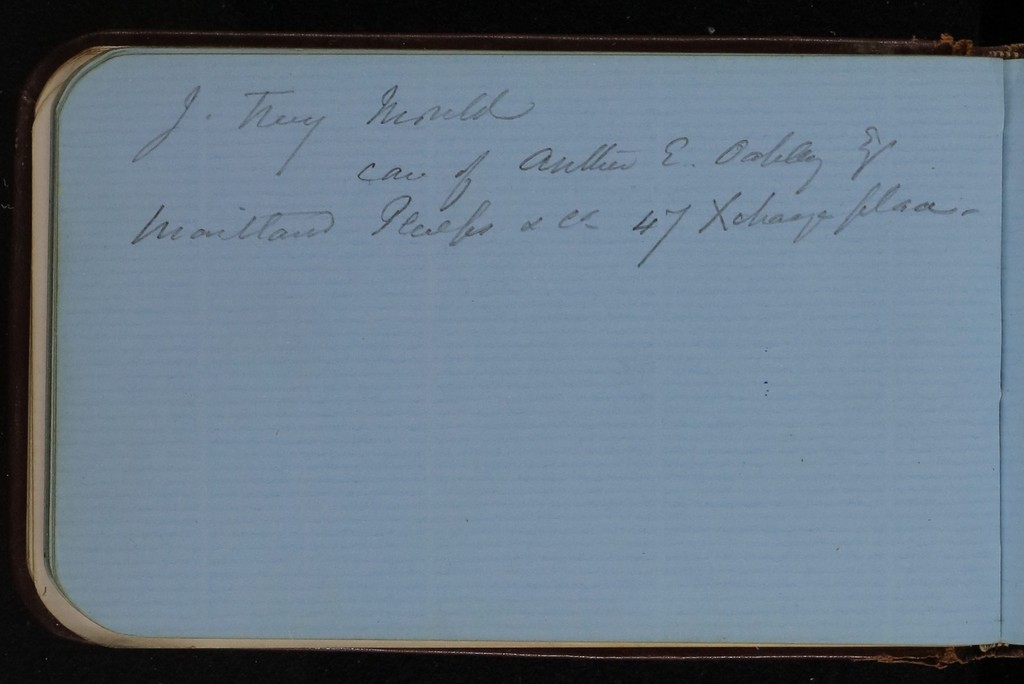 J. Trey Mould
care of Arthur E. Oakley Esq
Maitland Phelps & Co 47 Xchange place